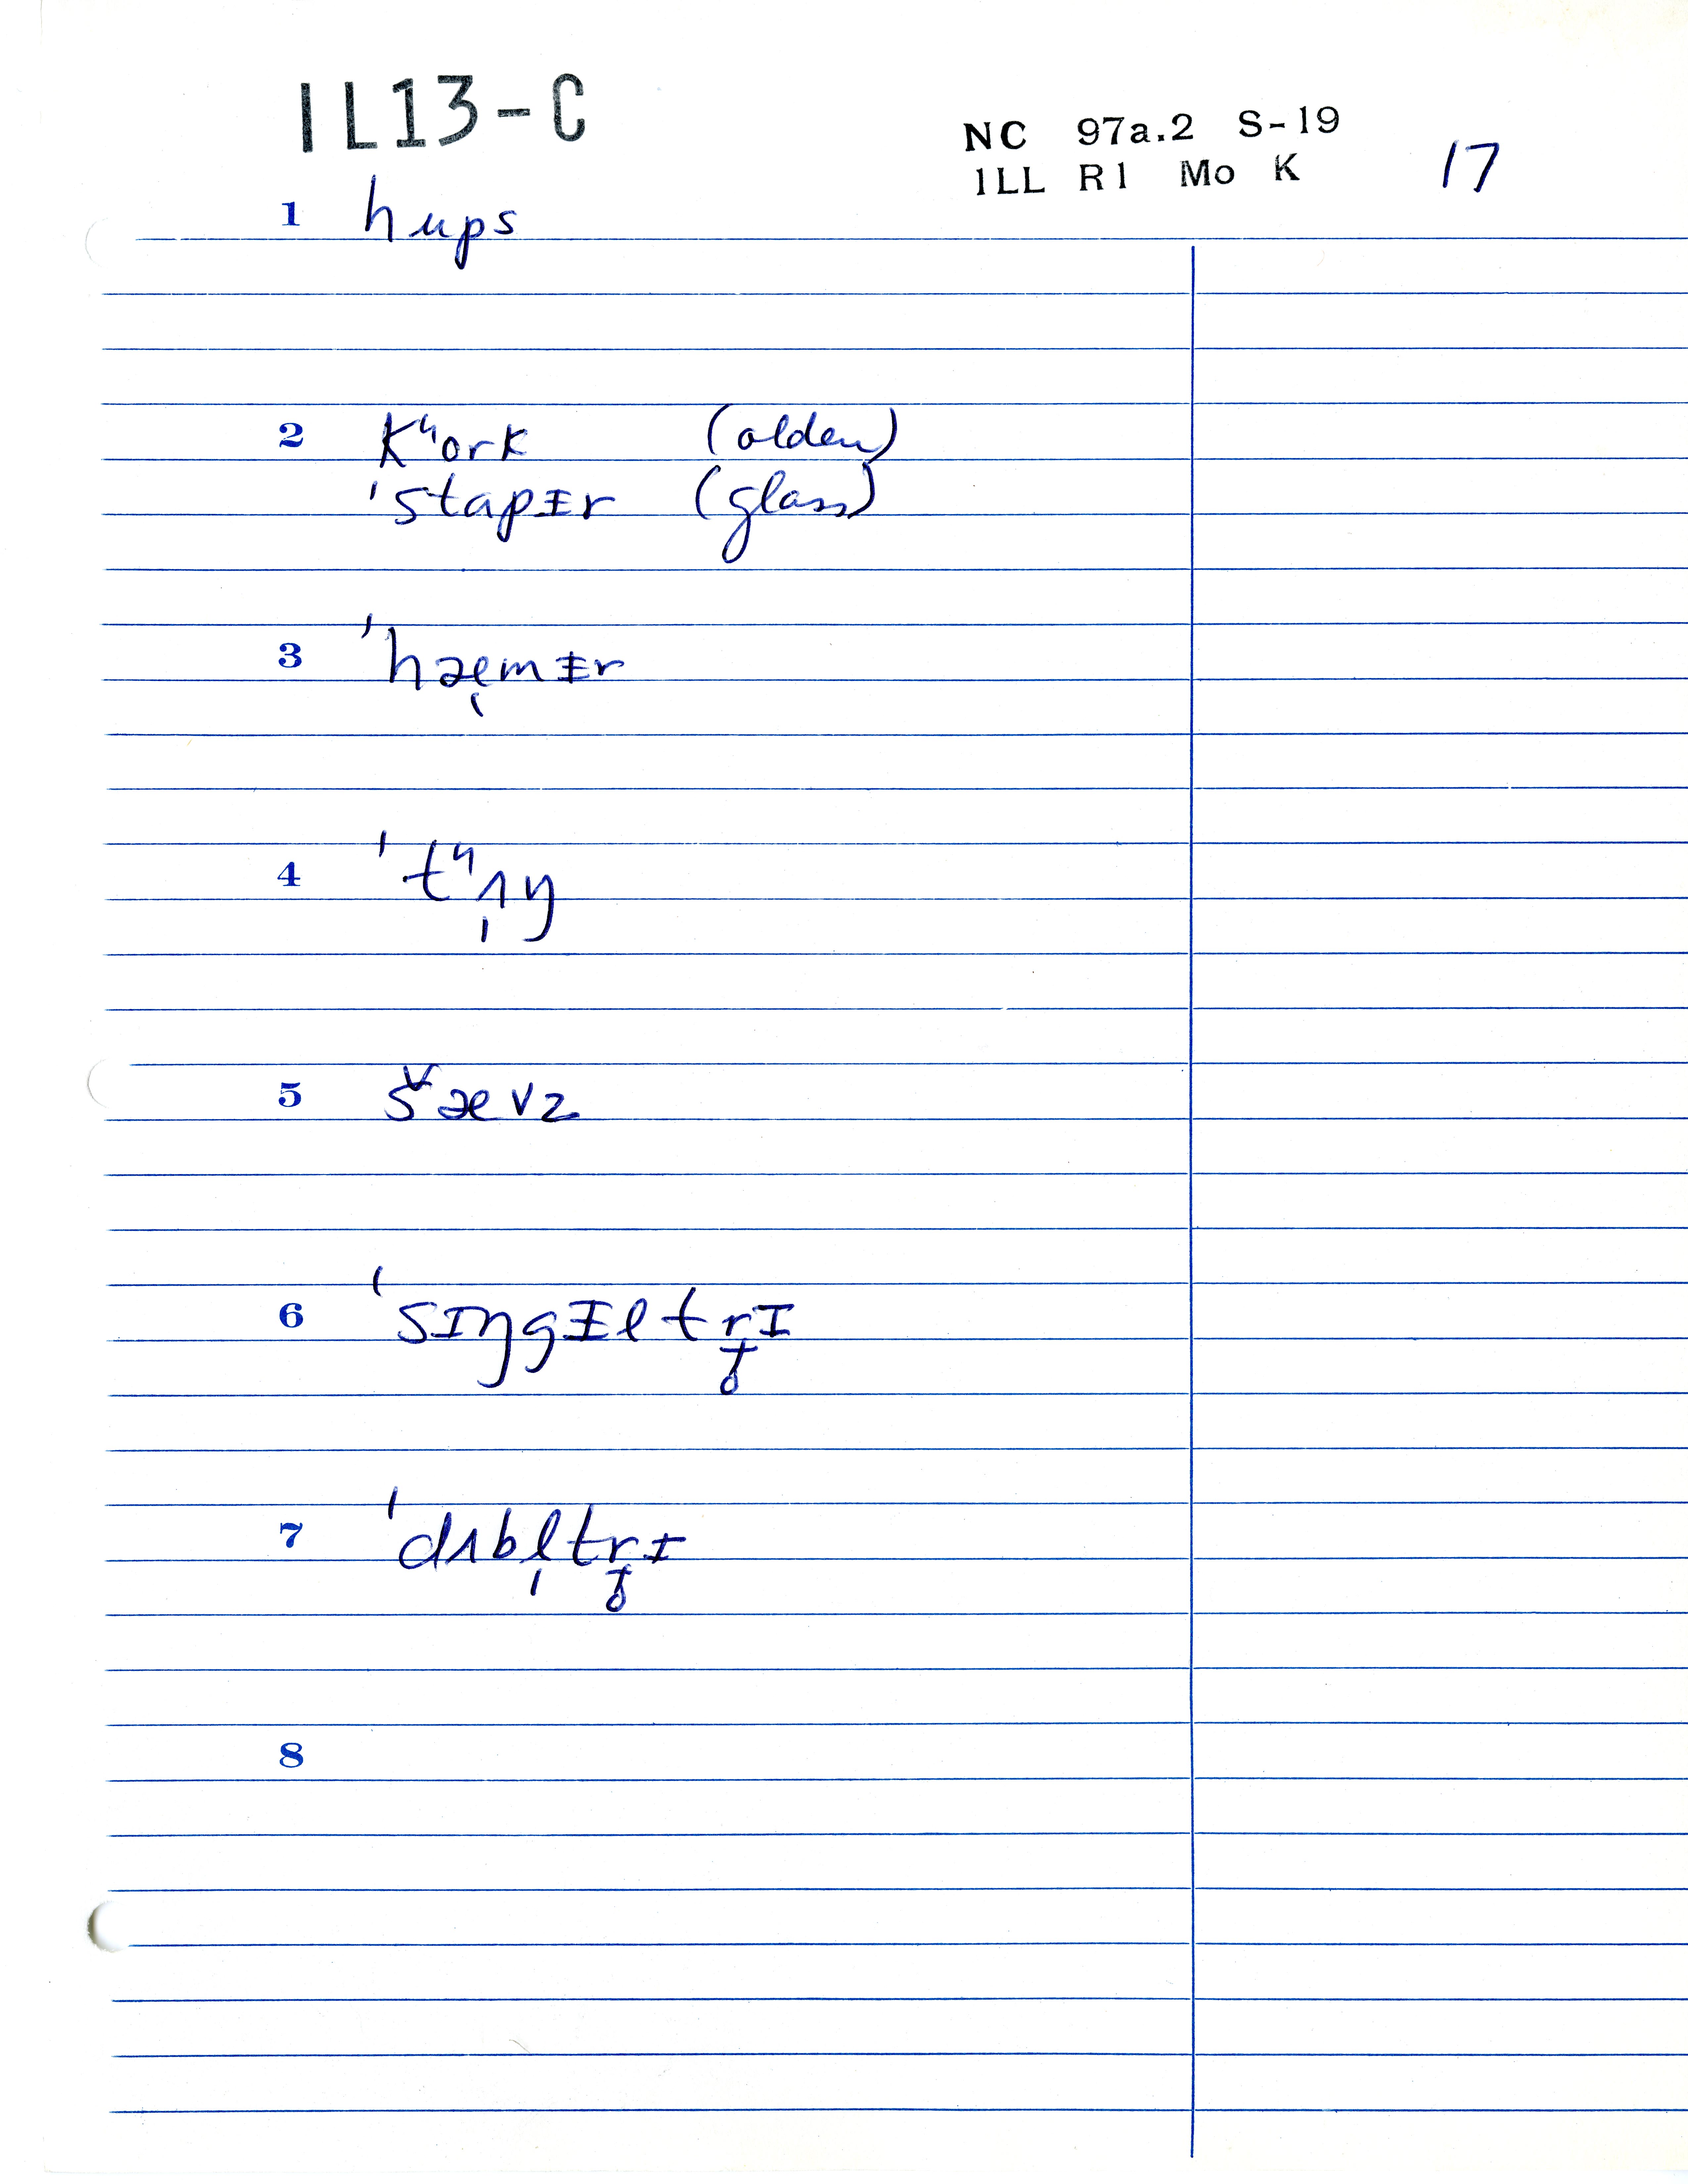 1L13-C
NC 97a.2 S-19
1LL R1 Mo K 17
1 hups
2 kʰork (olden)
ˈstapɪ̵r (glass)
3 ˈhæ̩mɪ̵r
4 ˈtʰʌ̩ŋ
5 šævz
6 ˈsɪŋgɪ̵ltr̥ɪ
7 ˈdʌbl̩tr̥ɪ
8